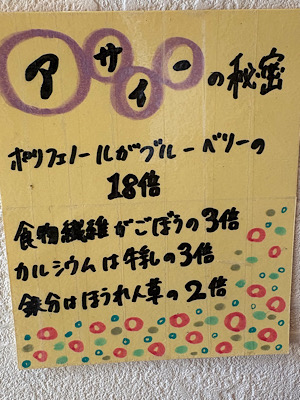 アサイーの秘密
ポリフェノールがブルーベリーの
18倍
食物繊維がごぼうの3倍
カルシウムは牛乳の3倍
鉄分はほうれん草の2倍